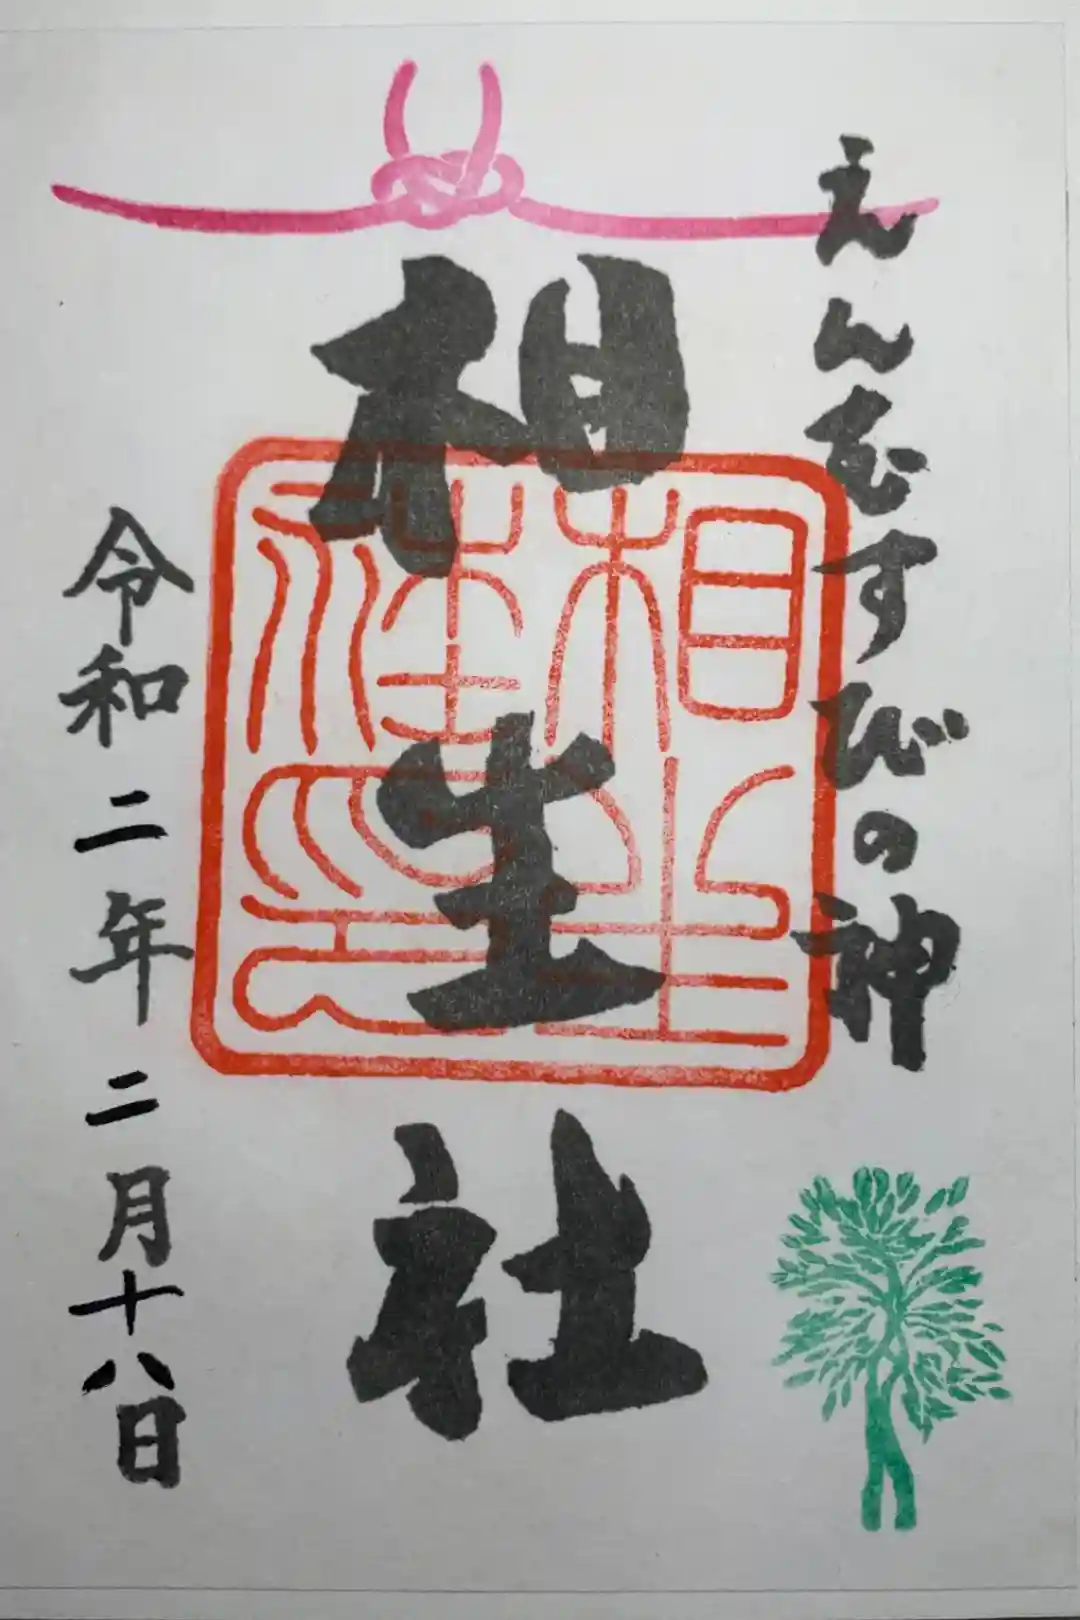 えんむすびの神
相生社
相生社印
令和二年二月十八日